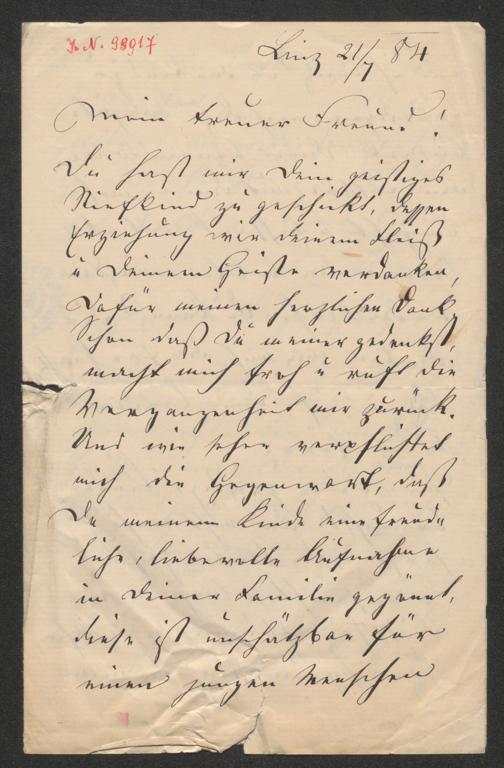 J. N. 98917
Linz 21/7 84
Mein treuer Freund!
Du hast mir Dein geistiges
Stiefkind zu geschickt, dessen
Erziehung wir deinem Fleiß
u Deinem Geiste verdanken,
Dafür meinen herzlichen Dank,
Schon daß Du meiner gedenkst,
macht mich froh u ruft die
Vergangenheit mir zurück.
Und wie sehr verpflichtet
mich die Gegenwart, daß
Du meinem Kinde eine freund-
liche, liebevolle Aufnahme
in Deiner Familie gegönnt,
diese ist unschätzbar für
einen jungen Menschen